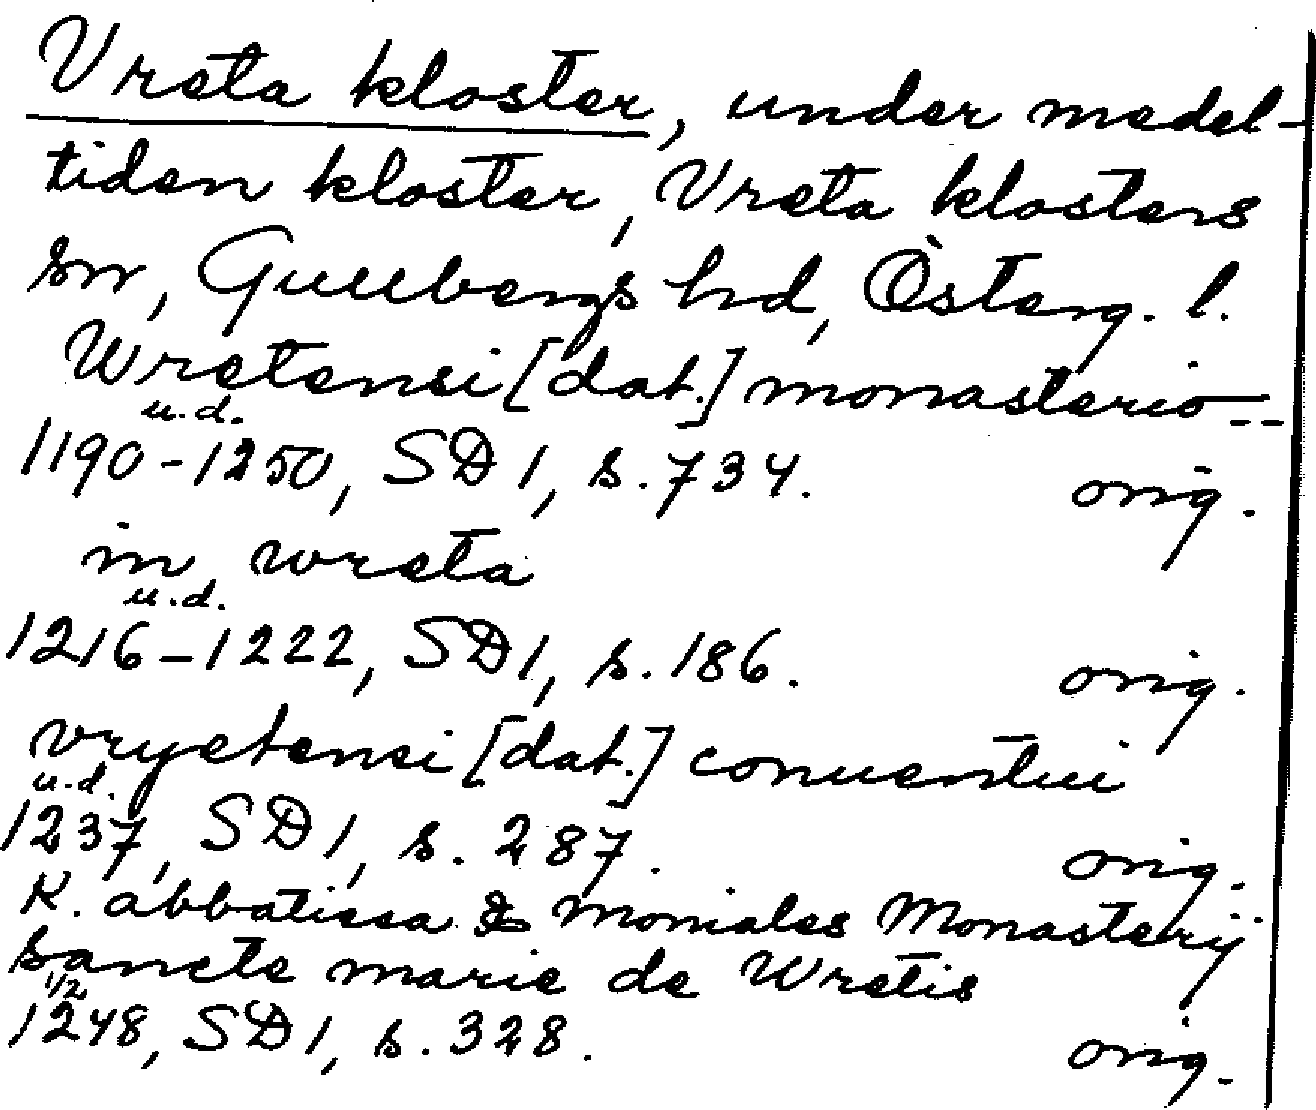 Vreta kloster, under medel-
tiden kloster, Vreta klosters
sn, Gullbergs hd, Österg. l.
Wretensi [dat.] monasterio --
u.d.
1190-1250, SD 1, s. 734. orig.
in wreta
u.d.
1216-1222, SD 1, s. 186. orig.
vryetensi [dat.] conuentui
u.d.
1237, SD 1, s. 287. orig.
K. abbatissa & moniales Monastery
sancte marie de Wretis
1/2
1248, SD 1, s. 328. orig.